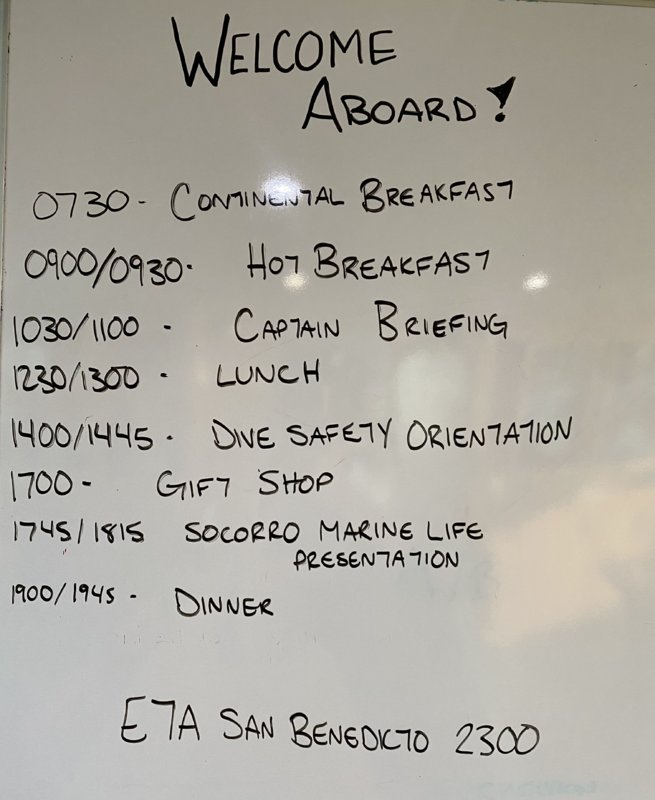 WELCOME
ABOARD!
0730- CONTINENTAL BREAKFAST
0900/0930- HOT BREAKFAST
1030/1100 - CAPTAIN BRIEFING
1230/1300 - LUNCH
1400/1445 - DIVE SAFETY ORIENTATION
1700- GIFT SHOP
1745/1815 SOCORRO MARINE LIFE
PRESENTATION
1900/1945 - DINNER
ETA SAN BENEDICTO 2300